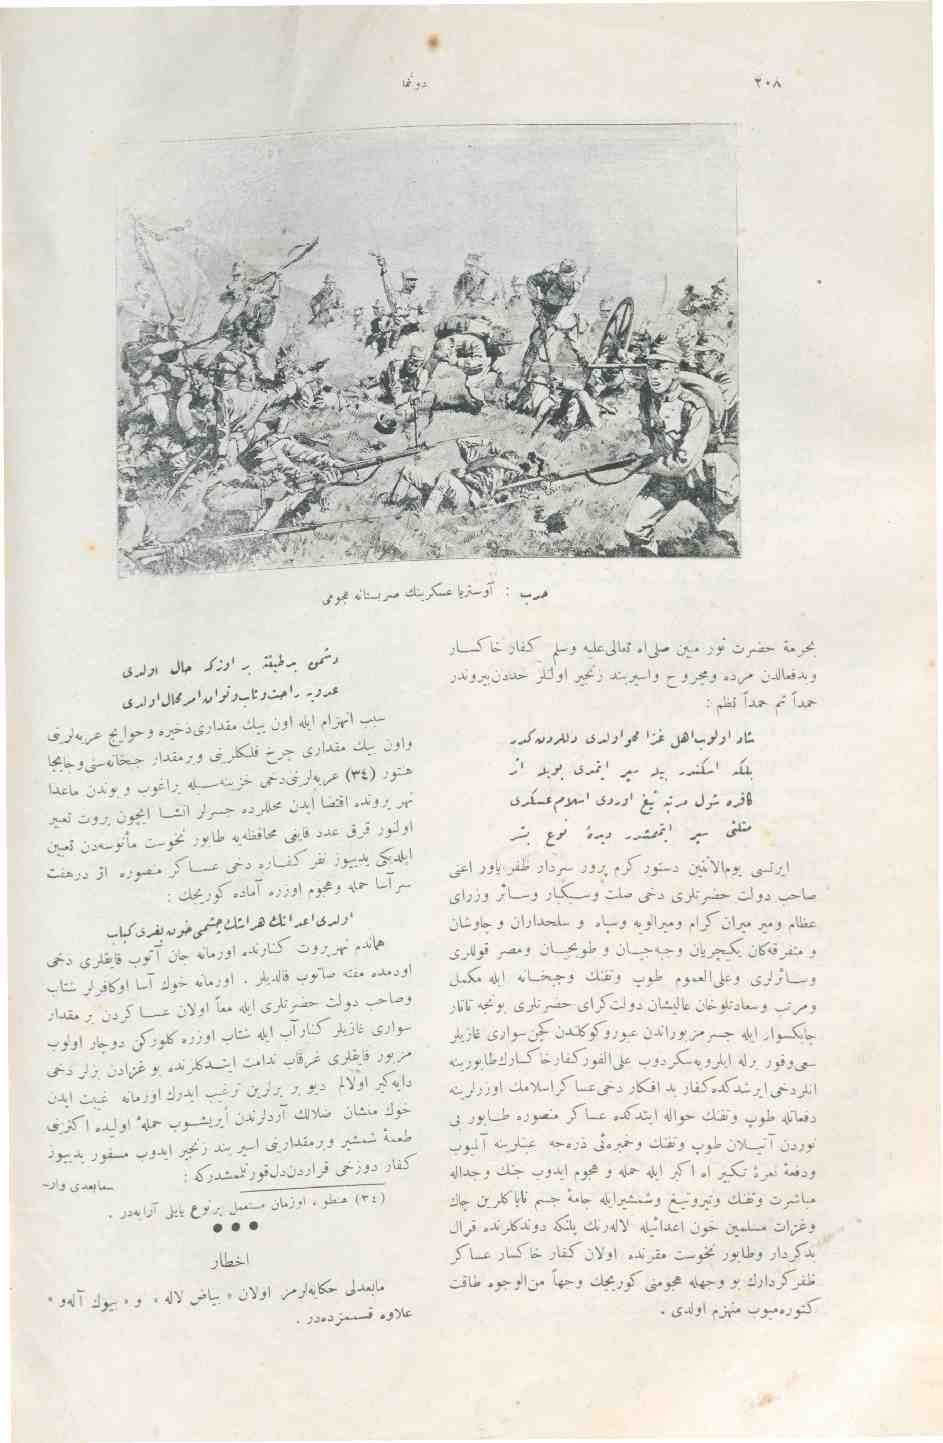 ٢٠٨
دونما
حرب : آوستریا عسکرینك صربستانه هجومی
بحرمة حضرت نور مبین صلی‌اه تعالی‌علیه وسلم کفار خاکسار
وبدفعالدن مرده ومجروح واسیربند زنجیر اولنلر حددن‌بیروندر
حمداً ثم حمداً نظم :
شاد اولوب‌اهل غزا محو اولدی دللردن‌کدر
بلکه اسکندر بیله سیر ایتمدی بویله اثر
کافره شول مرتبه تیغ اوردی اسلام عسکری
مثلنی سیر ایتممشدر دیدهٔ نوع بشر
ایرتسی یوم‌الاثنین دستور کرم پرور سردار ظفر یاور اعنی
صاحب دولت حضرتلری دخی صلت وسکبار وسائر وزرای
عظام ومیر میران کرام ومیرالویه وسپاه و سلحداران و چاوشان
و متفرقه‌کان یکیچریان وجبه‌جیان و طوبجیان ومصر قوللری
وسائرلری وعلی‌العموم طوپ وتفنك وجبخانه ایله مکمل
ومرتب وسعادتلوخان عالیشان دولت‌کرای حضرتلری بونجه تاتار
چابکسوار ایله جسر مزبوراندن عبور وکوکلدن کچن‌سواری غازیلر
سعی‌وفور برله ایلرویه‌سکردوب علی‌الفور کفار خاکسارك‌طابورینه
انلردخی ایرشدکده‌کفار بد افکار دخی‌عساکر اسلامك اوزرلرینه
دفعاتله طوپ وتفنك حواله ایتدکده عساکر منصوره طابور بی
نوردن آتیلان طوپ وتفنك وخمبره‌ئی ذره‌جه عنلرینه آلمیوب
ودفعهٔ نعرهٔ تکبیر اه اکبر ایله حمله و هجوم ایدوب جنك وجداله
مباشرت وتفنك وتیروتیغ وشمشیرایله جامهٔ جسم ناپاکلرین چاك
وغزات مسلمین خون اعدائیله لاله‌رنك یلنکه دوندکلرنده قرال
بدکردار وطابور نحوست مقرنده اولان کفار خاکسار عساکر
ظفرکردارك بو وجهله هجومنی کوریجك وجهاً من‌الوجوه طاقت
کتوره‌میوب منهزم اولدی .
دشمن بدطینته بر اوزکه حال اولدی
عدویه راحت‌وتاب‌وتوان امر محال اولدی
سبب انهزام ایله اون بیك مقداری‌ذخیره وحوایج عربه‌لرینی
واون بیك مقداری چرخ فلکلرینی وبرمقدار جبخانه‌سنی‌وجابجا
هنتور (٣٤) عربه‌لرینی‌دخی خزینه‌سیله براغوب و بوندن ماعدا
نهر برونده اقتضا ایدن محللرده جسرلر انشا ایچون بروت تعبیر
اولنور قرق عدد قایغی محافظه‌یه طابور نحوست مأنوسه‌دن تعیین
ایلدیکی یدییوز نفر کفاره دخی عساکر منصوره اثر درهفت
سرآسا حمله وهجوم اوزره آماده کوریجك :
اولدی اعدانك هر اشك‌چشمی خون بغری کباب
هماندم نهر بروت کنارنده اورمانه جان آتوب قایقلری دخی
اودمده مفته صاتوب قالدیلر . اورمانه خوك آسا اوکافرلر شتاب
وصاحب دولت حضرتلری ایله معاً اولان عساکردن بر مقدار
سواری غازیلر کنارآب ایله شتاب اوزره کلورکن دوچار اولوب
مزبور قایقلری غرقاب ندامت ایتدکلرنده بو غزادن بزلر دخی
دایه‌کیر اولالم دیو بر برلرین ترغیب ایدرك اورمانه غیبت ایدن
خوك منشان ضلالك آردلرندن ایریشوب حملهٔ اولیده اکثرینی
طعمهٔ شمشیر وبرمقدارینی اسیر بند زنجیر ایدوب مسفور یدییوز
کفار دوزخی قراردن‌دل‌قورتلمشدرکه :
ـمابعدی وارـ
(٣٤) هنطو ، اوزمان مستعمل برنوع یایلی آرابه‌در .
● ● ●
اخطار
مابعدلی حکایه‌لرمز اولان « بیاض لاله » و « بیوك آله‌و »
علاوه قسممزده‌در .